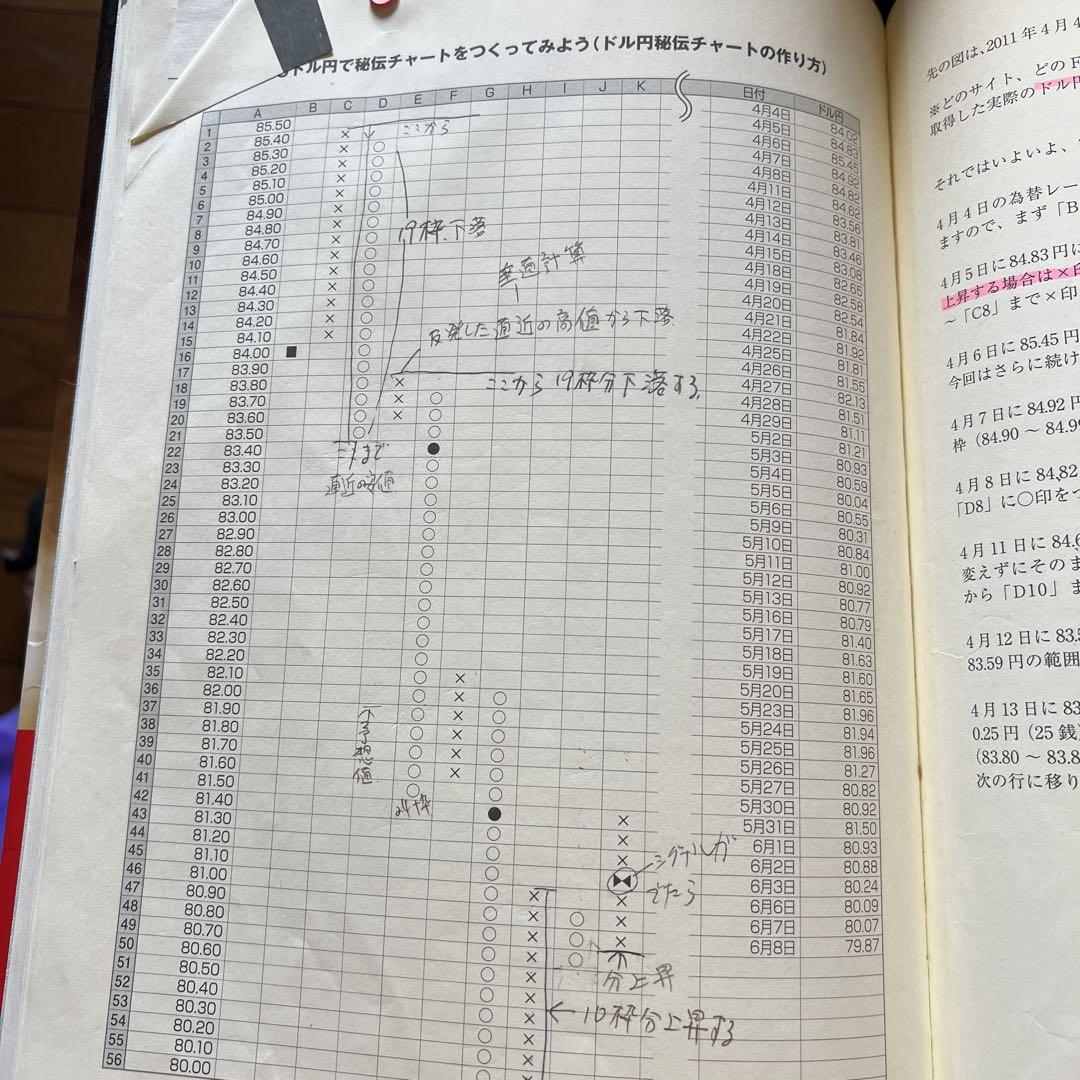 ドル円で秘伝チャートをつくってみよう(ドル円秘伝チャートの作り方)
A B C D E F G H I J K 日付 ドル円
1 85.50
2 85.40
3 85.30
4 85.20
5 85.10
6 85.00
7 84.90
8 84.80
9 84.70
10 84.60
11 84.50
12 84.40
13 84.30
14 84.20
15 84.10
16 84.00
17 83.90
18 83.80
19 83.70
20 83.60
21 83.50
22 83.40
23 83.30
24 83.20
25 83.10
26 83.00
27 82.90
28 82.80
29 82.70
30 82.60
31 82.50
32 82.40
33 82.30
34 82.20
35 82.10
36 82.00
37 81.90
38 81.80
39 81.70
40 81.60
41 81.50
42 81.40
43 81.30
44 81.20
45 81.10
46 81.00
47 80.90
48 80.80
49 80.70
50 80.60
51 80.50
52 80.40
53 80.30
54 80.20
55 80.10
56 80.00
ここから
19枠下落
計算
反発した直近の高値から下落
ここから19枠分下落する
ここまで
直近の安値
予想値
24枠
シグナルが
でたら
分上昇
←10枠分上昇する
4月4日 84.02
4月5日 84.83
4月6日 85.45
4月7日 84.92
4月8日 84.82
4月11日 84.62
4月12日 83.56
4月13日 83.81
4月14日 83.46
4月15日 83.08
4月18日 82.65
4月19日 82.58
4月20日 82.54
4月21日 81.84
4月22日 81.92
4月25日 81.81
4月26日 81.55
4月27日 82.13
4月28日 81.51
4月29日 81.11
5月2日 81.21
5月3日 80.93
5月4日 80.59
5月5日 80.04
5月6日 80.55
5月9日 80.31
5月10日 80.84
5月11日 81.00
5月12日 80.92
5月13日 80.77
5月16日 80.79
5月17日 81.40
5月18日 81.63
5月19日 81.60
5月20日 81.65
5月23日 81.96
5月24日 81.94
5月25日 81.96
5月26日 81.27
5月27日 80.82
5月30日 80.92
5月31日 81.50
6月1日 80.93
6月2日 80.88
6月3日 80.24
6月6日 80.09
6月7日 80.07
6月8日 79.87
先の図は、2011年4月4
※どのサイト、どのF
取得した実際のドル円
それではいよいよ、
4月4日の為替レー
ますので、まず「B
4月5日に84.83円に
上昇する場合は×印
～「C8」まで×印
4月6日に85.45円
今回はさらに続け
4月7日に84.92円
枠(84.90～84.99
4月8日に84.82
「D8」に○印をつ
4月11日に84.6
変えずにそのま
から「D10」ま
4月12日に83.5
83.59円の範囲
4月13日に83
0.25円(25銭)
(83.80～83.8
次の行に移り